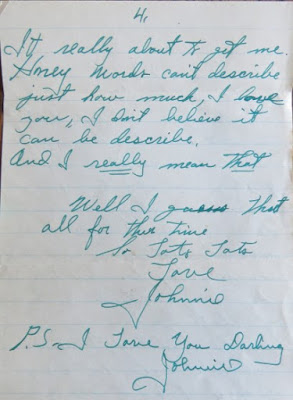 4.
It really about to get me.
Honey words can't describe
just how much, I love
you, I don't believe it
can be describe.
And I really mean that
Well I guess that
all for this time
So Tats Tats
Love
Johnnie
P.S. I Love You Darling
Johnnie